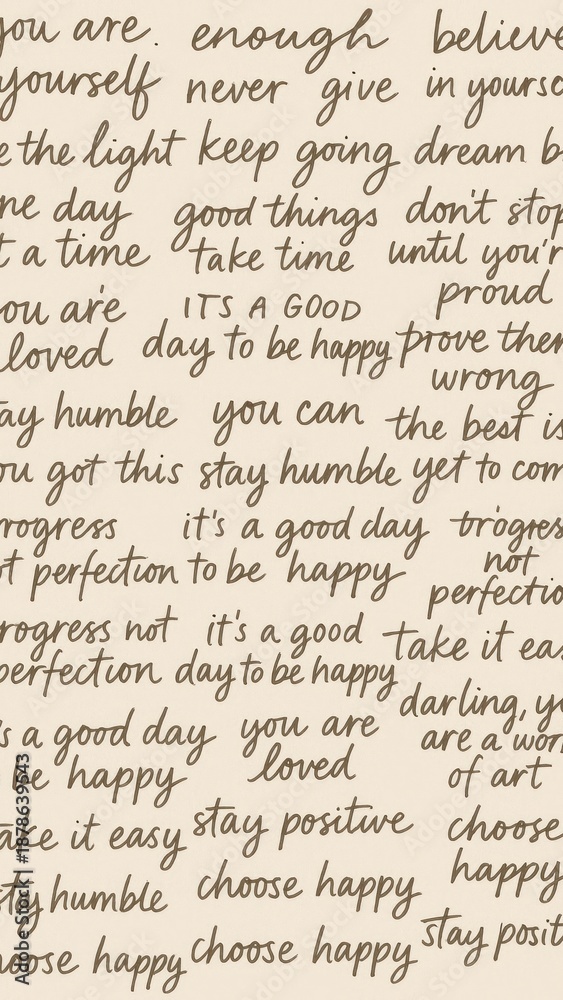 you are. enough believe
yourself never give in yourse
e the light keep going dream b
ne day good things don't stop
t a time take time until you'r
ou are ITS A GOOD proud
loved day to be happy prove then
wrong
ay humble you can the best is
ou got this stay humble yet to com
rogress it's a good day trogres
ot perfection to be happy not
perfectio
rogress not it's a good take it eas
perfection day to be happy
darling, yo
s a good day you are are a wor
be happy loved of art
ake it easy stay positive choose
stay humble choose happy happy
hoose happy choose happy stay posit
Adobe Stock | #1878639543